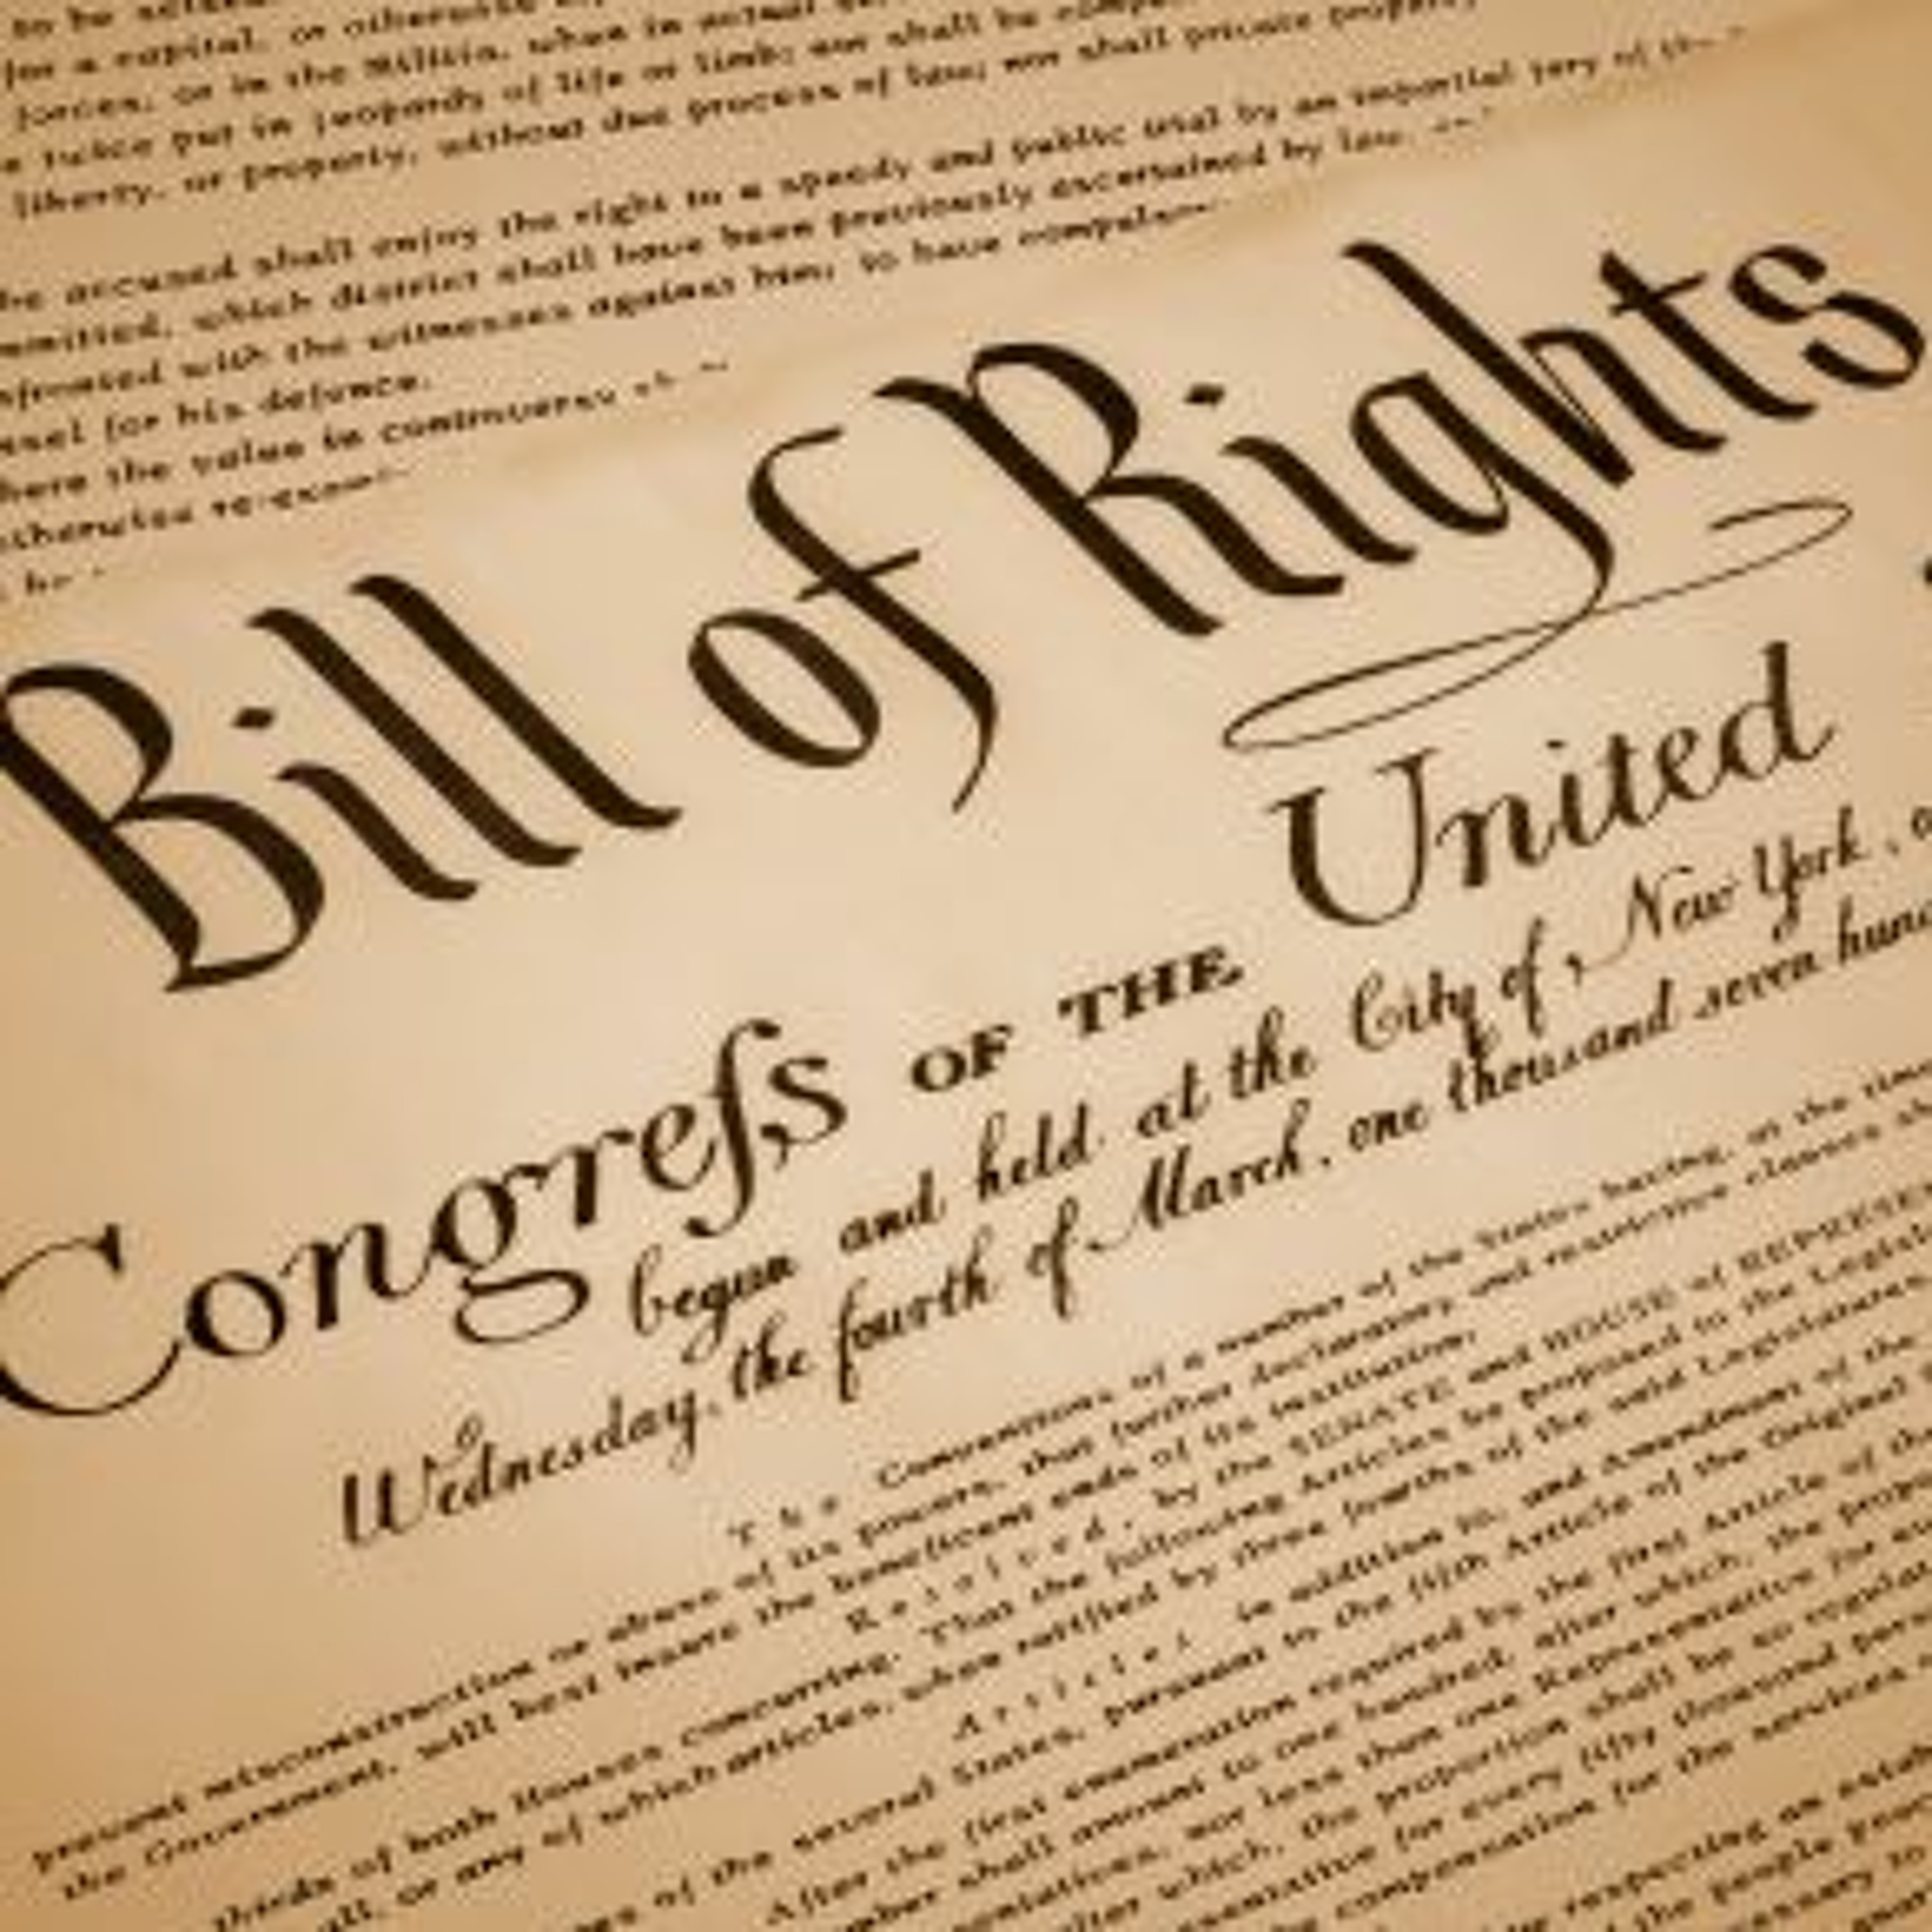 for a capital, or otherwise
forces, or in the Militia, when in actual
twice put in jeopardy of life or limb; nor shall be
liberty, or property, without due process of law; nor shall private property
he accused shall enjoy the right to a speedy and public trial by an impartial jury of
mmitted, which district shall have been previously ascertained by law,
nfronted with the witnesses against him; to have
nsel for his defence.
here the value in controversy
therwise re-exam
Bill of Rights
Congreſs OF THE United
begun and held at the City of New York,
Wednesday, the fourth of March, one thousand seven hund
The Conventions of a number of the States having, at the time
prevent misconstruction or abuse of its powers, that further declaratory and restrictive clauses
the Government, will best insure the beneficent ends of its institution,
Resolved, by the SENATE and HOUSE of REPRESE
thirds of both Houses concurring, That the following Articles be proposed to the Legisla
all, or any of which articles, when ratified by three fourths of the said Legislatures,
Articles in addition to, and Amendment of the
of the several States, pursuant to the fifth Article of the Original
After the first enumeration required by the First Article of the
mber shall amount to one hundred, after which, the propo
sentatives, nor less than one Representative for
after which, the proportion shall be so regulat
sentative for every fifty thousand pers
compensation for the services
respecting an estab
the people peac